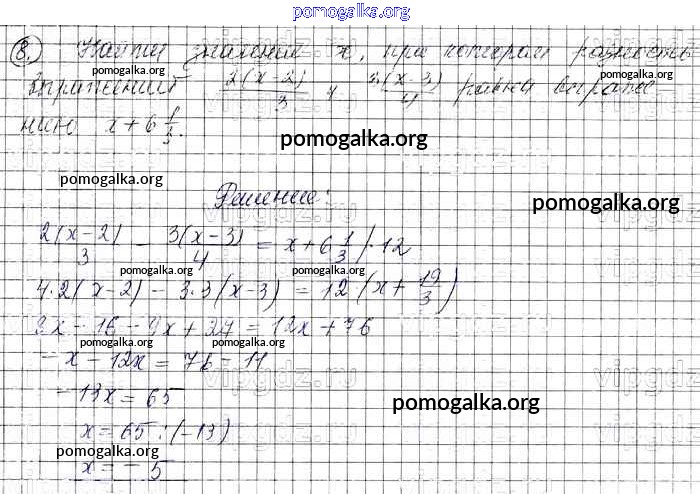 pomogalka.org
8. Найти значение x, при котором разность
pomogalka.org pomogalka.org
выражений 2(x-2)/3 и 3(x-3)/4 равна выраже
pomogalka.org
нию x+6 1/3.
pomogalka.org
pomogalka.org
Решение:
pomogalka.org
vipgdz.ru
2(x-2)/3 - 3(x-3)/4 = x+6 1/3 /·12
pomogalka.org pomogalka.org
4·2(x-2) - 3·3(x-3) = 12(x+19/3)
8x-16-9x+27=12x+76
pomogalka.org pomogalka.org
-x-12x=76-11
vipgdz.ru
-13x=65
pomogalka.org
x=65:(-13)
pomogalka.org
x=-5